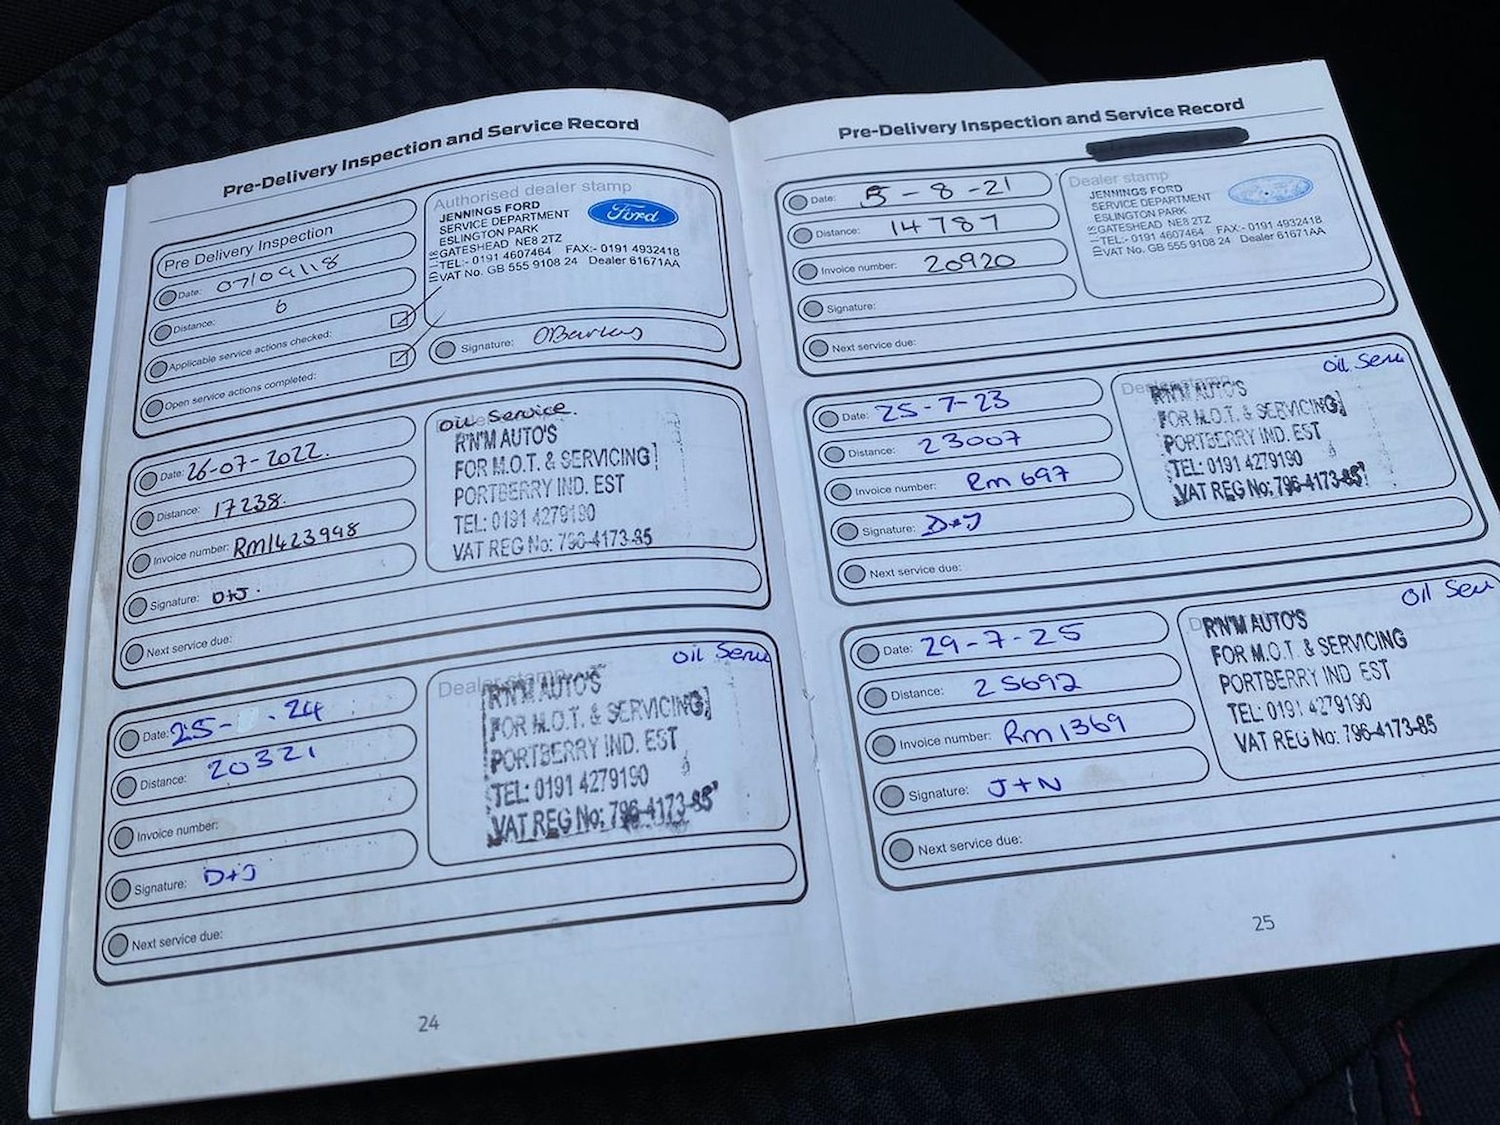 Pre-Delivery Inspection and Service Record
Pre Delivery Inspection
Date: 07/09/18
Distance: 6
Applicable service actions checked:
Open service actions completed:
Authorised dealer stamp
JENNINGS FORD
SERVICE DEPARTMENT
ESLINGTON PARK
GATESHEAD NE8 2TZ
TEL:- 0191 4607464 FAX:- 0191 4932418
VAT No. GB 555 9108 24 Dealer 61671AA
Ford
Signature:
Date: 26-07-2022.
Distance: 17238.
Invoice number: Rm1423948
Signature: D+J.
Next service due:
Oil Service.
R'N'M AUTO'S
FOR M.O.T. & SERVICING
PORTBERRY IND. EST
TEL: 0191 4279190
VAT REG No: 796-4173-85
Date: 25- .24
Distance: 20321
Invoice number:
Signature: D+J
Next service due:
Dealer stamp
Oil Serv
R'N'M AUTO'S
FOR M.O.T. & SERVICING
PORTBERRY IND. EST
TEL: 0191 4279190
VAT REG No: 796-4173-85
24
Pre-Delivery Inspection and Service Record
Date: 5-8-21
Distance: 14787
Invoice number: 20920
Signature:
Next service due:
Dealer stamp
JENNINGS FORD
SERVICE DEPARTMENT
ESLINGTON PARK
GATESHEAD NE8 2TZ
TEL:- 0191 4607464 FAX:- 0191 4932418
VAT No. GB 555 9108 24 Dealer 61671AA
Date: 25-7-23
Distance: 23007
Invoice number: Rm 697
Signature: D+J
Next service due:
Oil Serv
R'N'M AUTO'S
FOR M.O.T. & SERVICING
PORTBERRY IND. EST
TEL: 0191 4279190
VAT REG No: 796-4173-85
Date: 29-7-25
Distance: 25692
Invoice number: Rm1369
Signature: J+N
Next service due:
Oil Serv
R'N'M AUTO'S
FOR M.O.T. & SERVICING
PORTBERRY IND. EST
TEL: 0191 4279190
VAT REG No: 796-4173-85
25